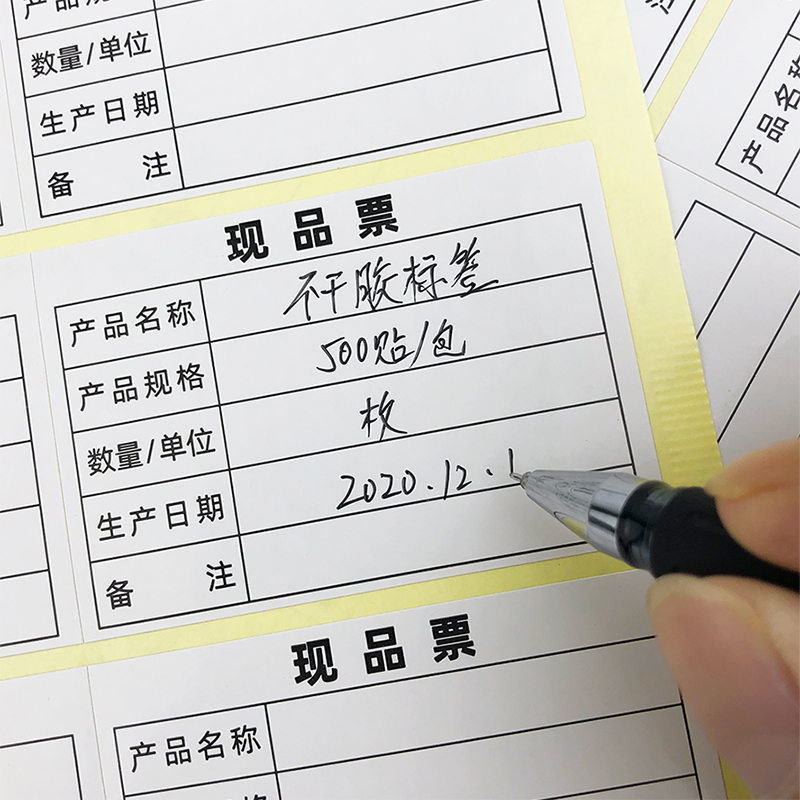 产品规格
数量/单位
生产日期
备 注
产品名称
现品票
产品名称 不干胶标签
产品规格 500贴/包
数量/单位 枚
生产日期 2020.12.1
备 注
现品票
产品名称